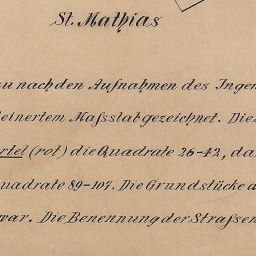 St. Mathias
zu nach den Aufnahmen des Ingen
leinertem Maſsstat gezeichnet. Die
ertel (rot) die Quadrate 26-42, da
uadrate 89-107. Die Grundstücke a
war. Die Benennung der Straſsen